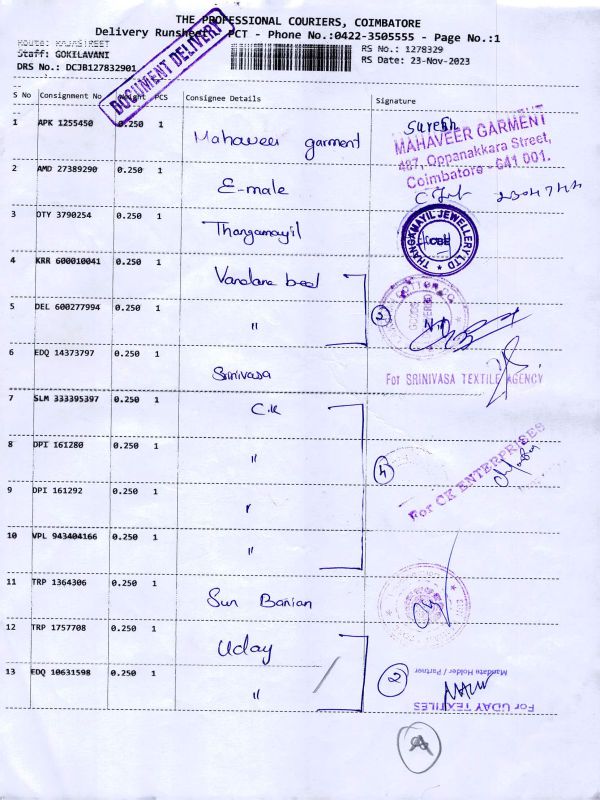 THE PROFESSIONAL COURIERS, COIMBATORE
Delivery Runsheet PCT - Phone No.:0422-3505555 - Page No.:1
Route: RAJASTREET
RS No.: 1278329
Staff: GOKILAVANI
RS Date: 23-Nov-2023
DRS No.: DCJB127832901
DOCUMENT DELIVERY
S No Consignment No Weight PCS Consignee Details Signature
1 APK 1255450 0.250 1 Mahaveer garment Suresh
MAHAVEER GARMENT
487, Oppanakkara Street,
Coimbatore - 641 001.
2 AMD 27389290 0.250 1 E-male
3 DTY 3790254 0.250 1 Thangamayil
THANGAMAYIL JEWELLERY LTD
CBE
4 KRR 600010041 0.250 1 Vandana bed
5 DEL 600277994 0.250 1 "
6 EDQ 14373797 0.250 1 Srinivasa
For SRINIVASA TEXTILE AGENCY
7 SLM 333395397 0.250 1 C.K
8 DPI 161280 0.250 1 "
4
For CK ENTERPRISES
9 DPI 161292 0.250 1 "
10 VPL 943404166 0.250 1 "
11 TRP 1364306 0.250 1 Sun Banian
12 TRP 1757708 0.250 1 Uday
Mandate Holder / Partner
13 EDQ 10631598 0.250 1 "
2
For UDAY TEXTILES
A